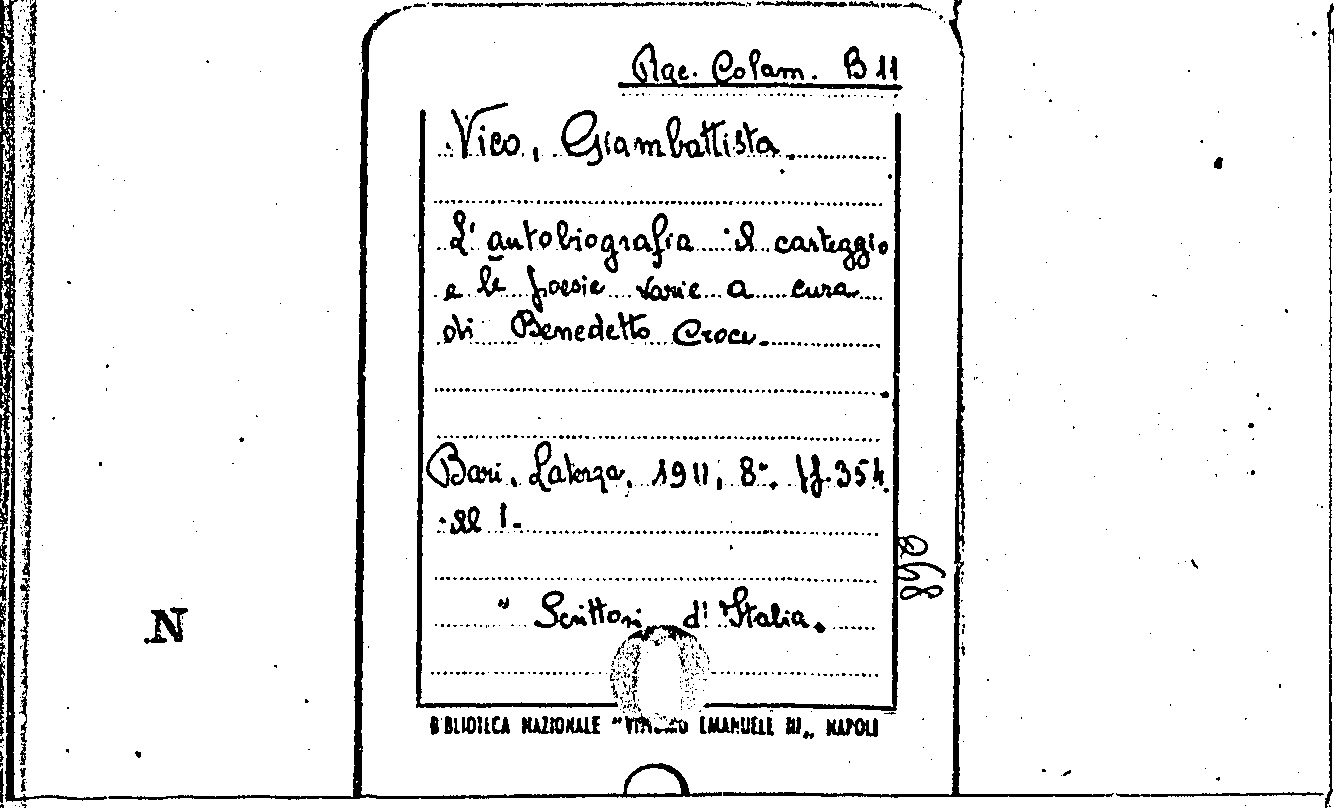 Rac. Colam. B 11
Vico, Giambattista.
L'autobiografia il carteggio
e le poesie varie a cura
di Benedetto Croce.
Bari, Laterza, 1911, 8°. ff. 354.
" Scrittori d'Italia.
268
N
BIBLIOTECA NAZIONALE "VITTORIO EMANUELE III„ NAPOLI